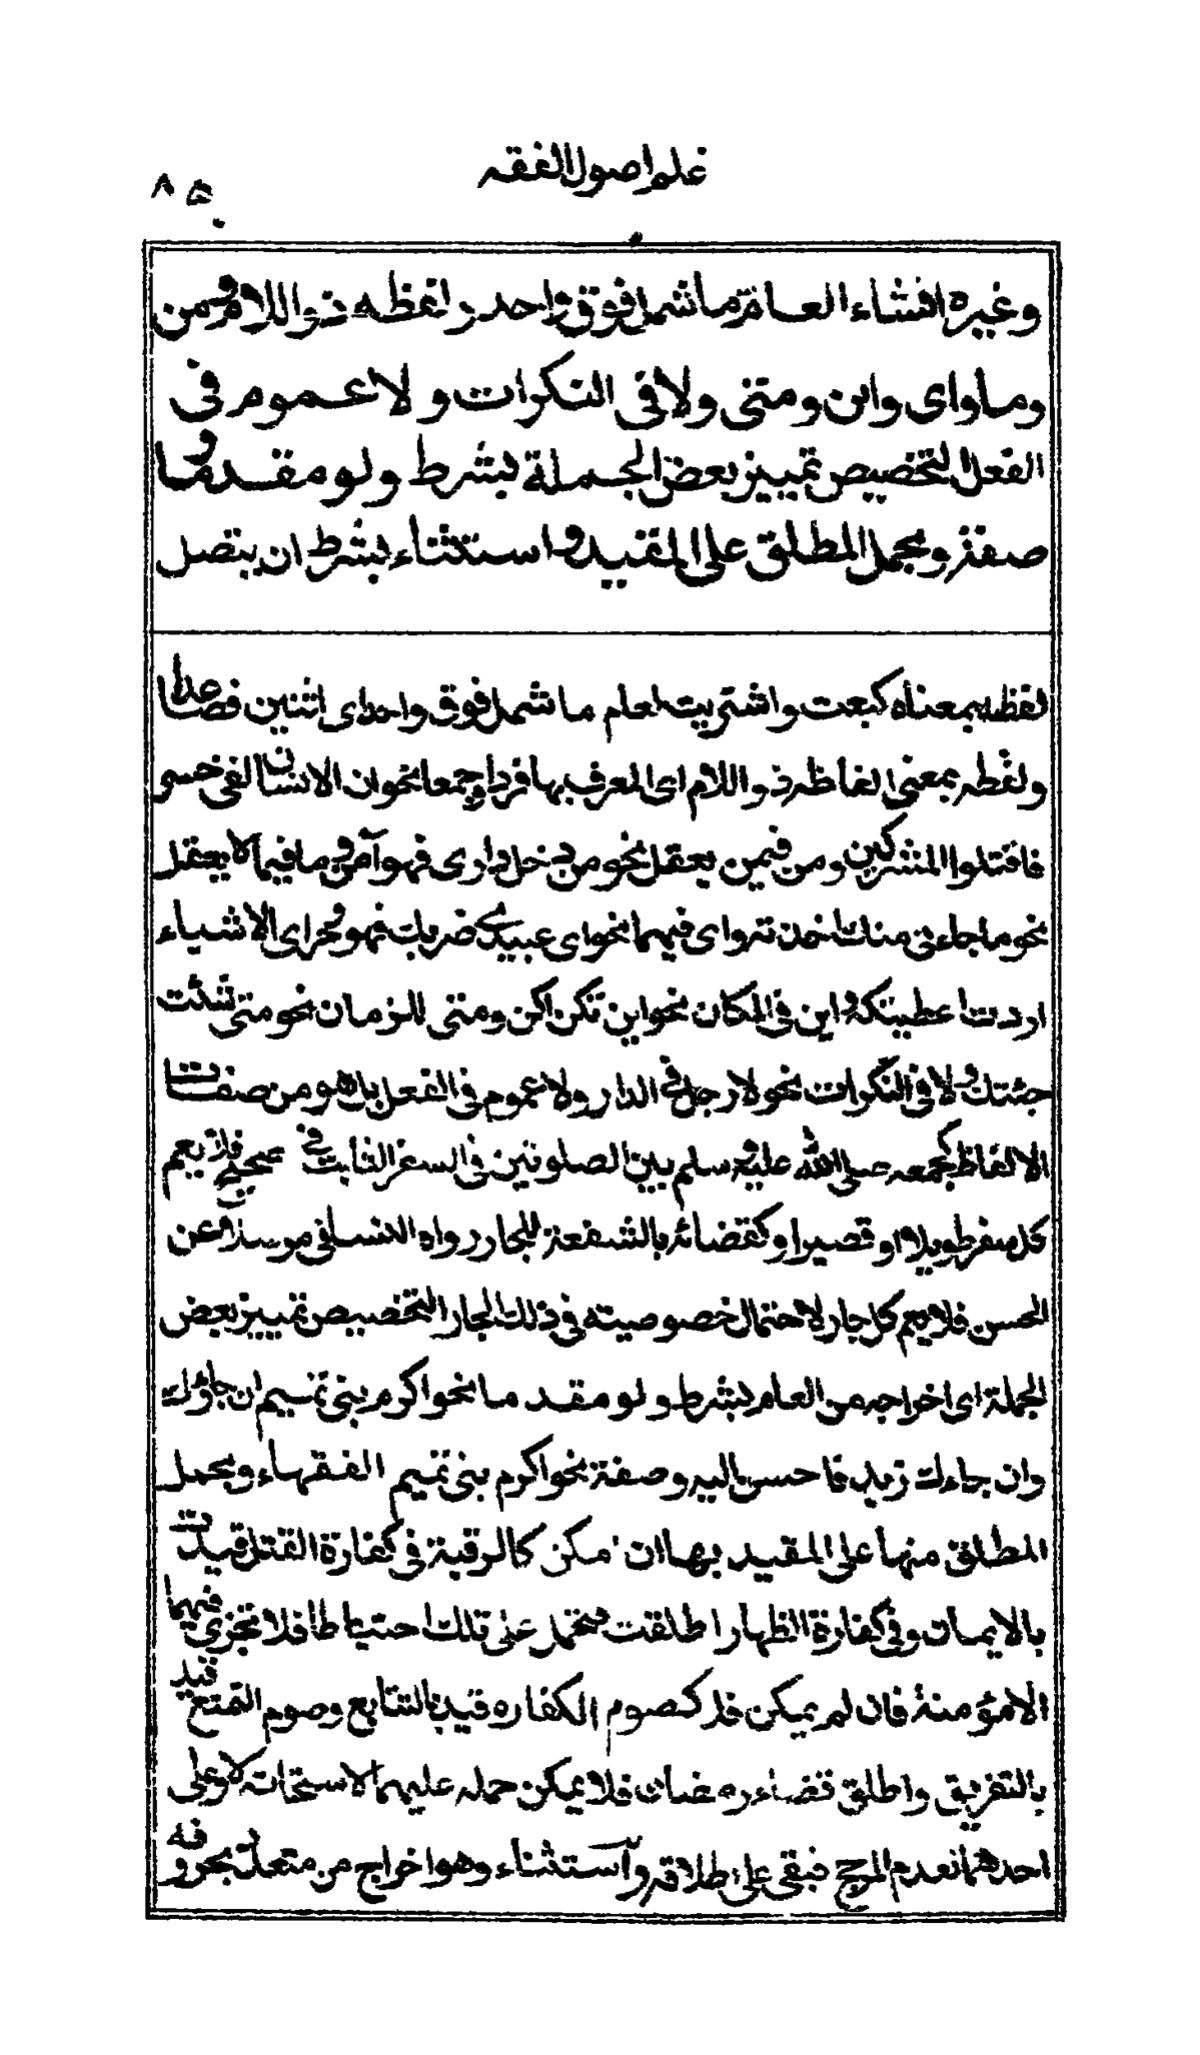 علم اصول الفقه
٨٥
وغيره انشاء العام ما شمل فوق واحد ولفظه ذو اللام ومن
وما واى واين ومتى ولا فى النكرات ولا عموم فى
الفعل التخصيص تمييز بعض الجملة بشرط ولو مقدما و
صفة ويحمل المطلق على المقيد واستثناء بشرط ان يتصل
لفظه بمعناه كبعت واشتريت العام ما شمل فوق واحد اى اثنين فصاعدا
ولفظه بمعنى الفاظه ذو اللام اى المعرف بها فردا وجمعا نحو ان الانسان لفى خسر
فاقتلوا المشركين ومن فيمن يعقل نحو من دخل دارى فهو آمن وما فيما لا يعقل
نحو ما جاءنى منك اخذته واى فيهما نحو اى عبيدى ضربك فهو حر اى الاشياء
اردت اعطيتكه واين فى المكان نحو اين تكن اكن ومتى للزمان نحو متى شئت
جئتك ولا فى النكرات نحو لا رجل فى الدار ولا عموم فى الفعل بل هو من صفات
الالفاظ كجمعه صلى الله عليه وسلم بين الصلوتين فى السفر الثابت فى صحيح فلا يعم
كل سفر طويلا او قصيرا وكقضائه بالشفعة للجار رواه النسائى مرسلا عن
الحسن فلا يعم كل جار لاحتمال خصوصيته فى ذلك الجار التخصيص تمييز بعض
الجملة اى اخراجه من العام بشرط ولو مقدما نحو اكرم بنى تميم ان جاؤك
وان جاءك زيد فاحسن اليه وصفة نحو اكرم بنى تميم الفقهاء ويحمل
المطلق منها على المقيد بها ان امكن كالرقبة فى كفارة القتل قيدت
بالايمان وفى كفارة الظهار اطلقت فتحمل على تلك احتياطا فلا تجزى فيهما
الا مؤمنة فان لم يمكن فلا كصوم الكفاره قيد بالتتابع وصوم التمتع قيد
بالتفريق واطلق قضاء رمضان فلا يمكن حمله عليهما لاستحالته ولا على
احدهما لعدم المرجح فبقى على اطلاقه واستثناء وهو اخراج من متعدد بحروفه